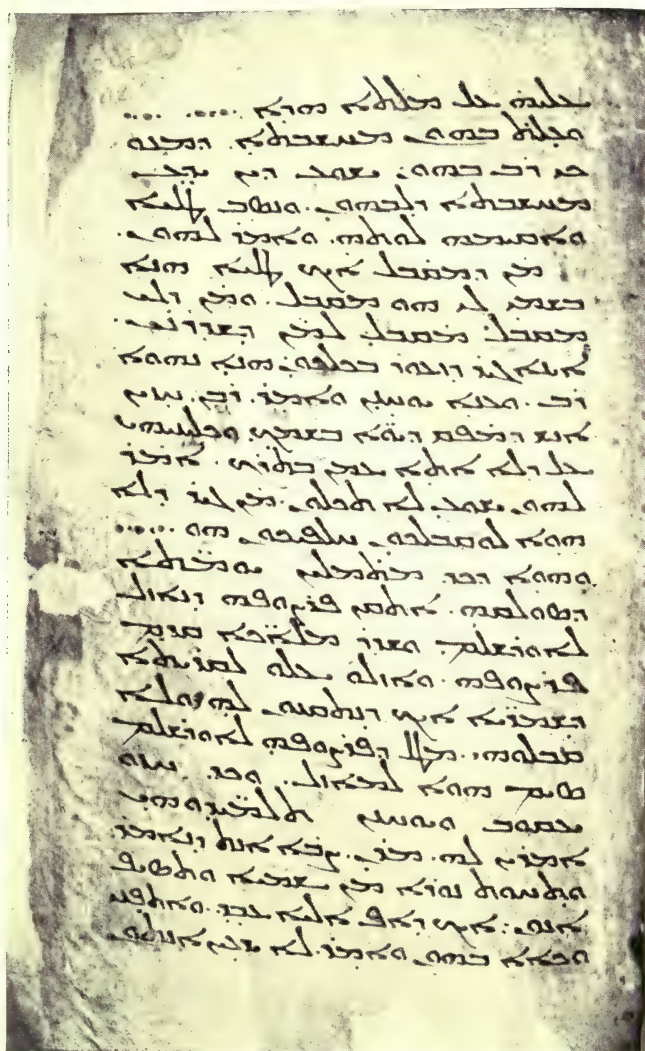 ܥܠܝܗ ܥܠ ܡܠܬܐ ܗܕܐ
ܘܥܠܬ ܒܗܘܢ ܡܚܫܒܬܐ. ܕܡܢܘ
ܟܝ ܪܒ ܒܗܘܢ. ܝܫܘܥ ܕܝܢ ܝܕܥ
ܡܚܫܒܬܐ ܕܠܒܗܘܢ. ܘܢܣܒ ܛܠܝܐ
ܘܐܩܝܡܗ ܠܘܬܗ. ܘܐܡܪ ܠܗܘܢ.
ܡܢ ܕܡܩܒܠ ܐܝܟ ܛܠܝܐ ܗܢܐ
ܒܫܡܝ ܠܝ ܗܘ ܡܩܒܠ. ܘܡܢ ܕܠܝ
ܡܩܒܠ ܡܩܒܠ ܠܡܢ ܕܫܕܪܢܝ.
ܐܝܢܐ ܓܝܪ ܕܙܥܘܪ ܒܟܠܟܘܢ ܗܢܐ ܢܗܘܐ
ܪܒ. ܘܥܢܐ ܝܘܚܢܢ ܘܐܡܪ ܪܒܢ ܚܙܝܢ
ܐܢܫ ܕܡܦܩ ܕܝܘܐ ܒܫܡܟ ܘܟܠܝܢܝܗܝ
ܥܠ ܕܠܐ ܐܬܐ ܥܡܢ ܒܬܪܟ. ܐܡܪ
ܠܗܘܢ ܝܫܘܥ ܠܐ ܬܟܠܘܢ. ܡܢ ܓܝܪ ܕܠܐ
ܗܘܐ ܠܘܩܒܠܟܘܢ ܚܠܦܝܟܘܢ ܗܘ
ܘܗܘܐ ܕܟܕ ܡܬܡܠܝܢ ܝܘܡܬܐ
ܕܣܘܠܩܗ. ܐܬܩܢ ܦܪܨܘܦܗ ܕܢܐܙܠ
ܠܐܘܪܫܠܡ. ܘܫܕܪ ܡܠܐܟܐ ܩܕܡ
ܦܪܨܘܦܗ. ܘܐܙܠܘ ܥܠܘ ܠܩܪܝܬܐ
ܕܫܡܪܝܐ ܐܝܟ ܕܢܬܩܢܘܢ ܠܗ ܘܠܐ
ܩܒܠܘܗܝ. ܡܛܠ ܕܦܪܨܘܦܗ ܠܐܘܪܫܠܡ
ܣܝܡ ܗܘܐ ܠܡܐܙܠ. ܘܟܕ ܚܙܘ
ܝܥܩܘܒ ܘܝܘܚܢܢ ܬܠܡܝܕܘܗܝ
ܐܡܪܝܢ ܠܗ. ܡܪܢ. ܨܒܐ ܐܢܬ ܕܢܐܡܪ
ܘܬܚܘܬ ܢܘܪܐ ܡܢ ܫܡܝܐ ܘܬܣܝܦ
ܐܢܘܢ. ܐܝܟ ܕܐܦ ܐܠܝܐ ܥܒܕ. ܘܐܬܦܢܝ
ܘܟܐܐ ܒܗܘܢ ܘܐܡܪ. ܠܐ ܝܕܥܝܢ ܐܢܬܘܢ